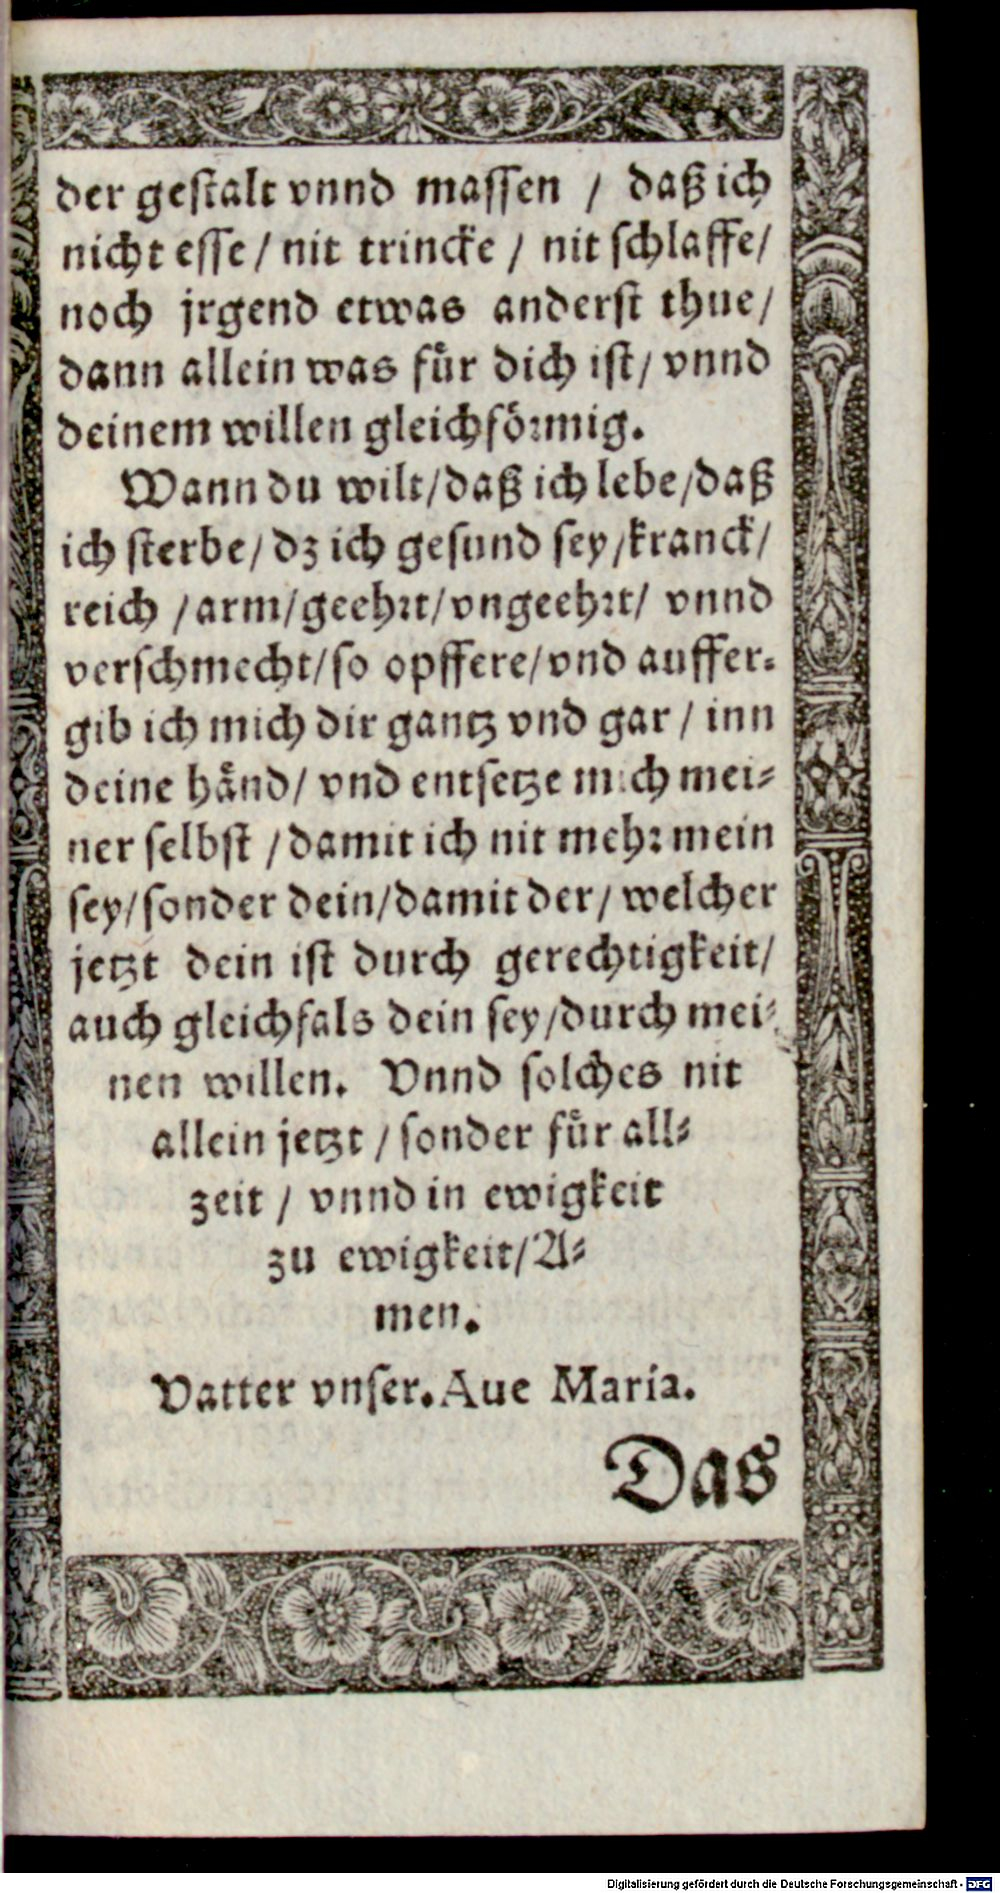 der geſtalt vnnd maſſen / daß ich
nicht eſſe / nit trincke / nit ſchlaffe /
noch jrgend etwas anderſt thue /
dann allein was fuͤr dich iſt / vnnd
deinem willen gleichfoͤꝛmig.
Wann du wilt / daß ich lebe / daß
ich ſterbe / dz ich geſund ſey / kranck /
reich / arm / geehꝛt / vngeehꝛt / vnnd
verſchmecht / ſo opffere / vnd auffer⸗
gib ich mich dir gantz vnd gar / inn
deine haͤnd / vnd entſetze mich mei⸗
ner ſelbſt / damit ich nit mehꝛ mein
ſey / ſonder dein / damit der / welcher
jetzt dein iſt durch gerechtigkeit /
auch gleichfals dein ſey / durch mei⸗
nen willen. Vnnd ſolches nit
allein jetzt / ſonder fuͤr all⸗
zeit / vnnd in ewigkeit
zu ewigkeit / A⸗
men.
Vatter vnſer. Aue Maria.
Das
Digitalisierung gefördert durch die Deutsche Forschungsgemeinschaft - DFG